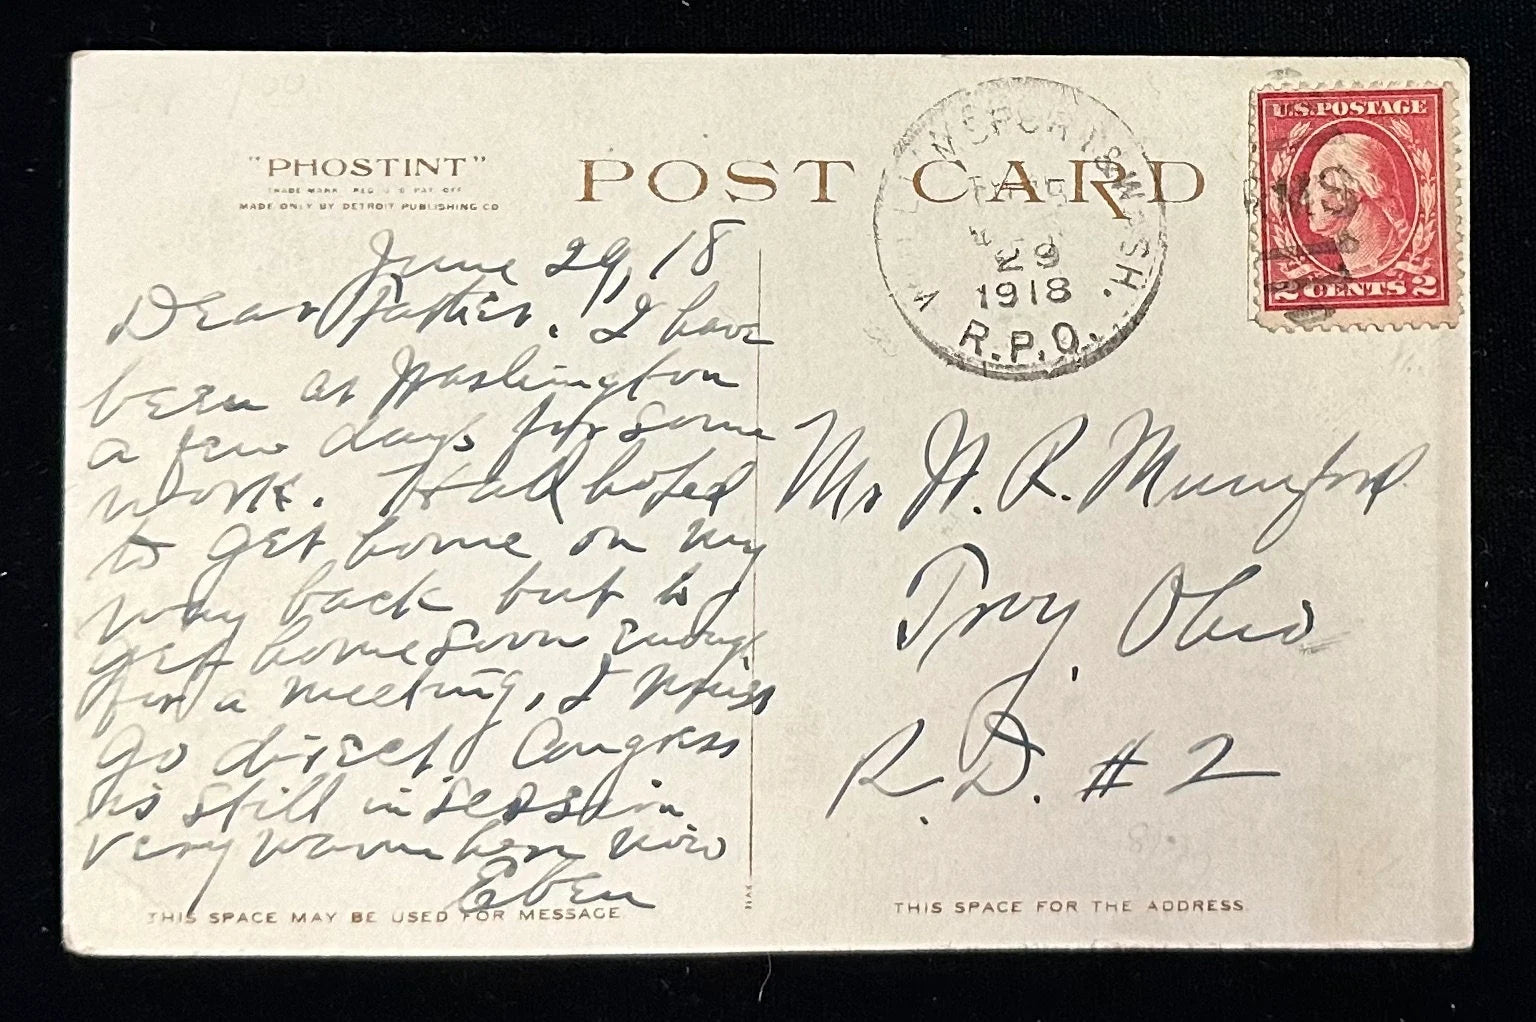 "PHOSTINT"
TRADE MARK REG U S PAT OFF
MADE ONLY BY DETROIT PUBLISHING CO
POST CARD
WILLIAMSPORT & WASH.
29
1918
R.P.O.
U.S. POSTAGE
RMS
2 CENTS 2
June 29, 18
Dear Father. I have
been at Washington
a few days for some
work. Had hoped
to get home on my
way back but to
get home soon enough
for a meeting, I must
go direct. Congress
is still in session
very warm here now
Eben
THIS SPACE MAY BE USED FOR MESSAGE
Mr R. Mumford
Troy, Ohio
R.D. #2
THIS SPACE FOR THE ADDRESS